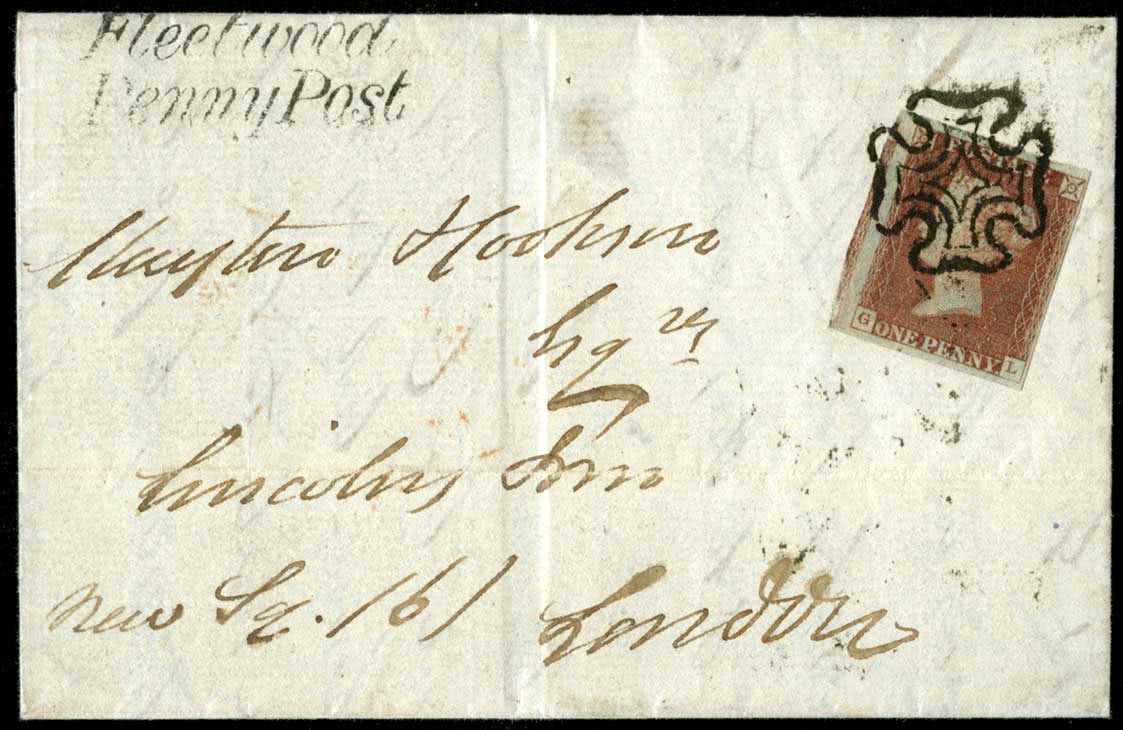 Fleetwood
Penny Post
POSTAGE
G ONE PENNY. L
Hookson
Esqre
Lincolns Inn
New Sq. 16)
London